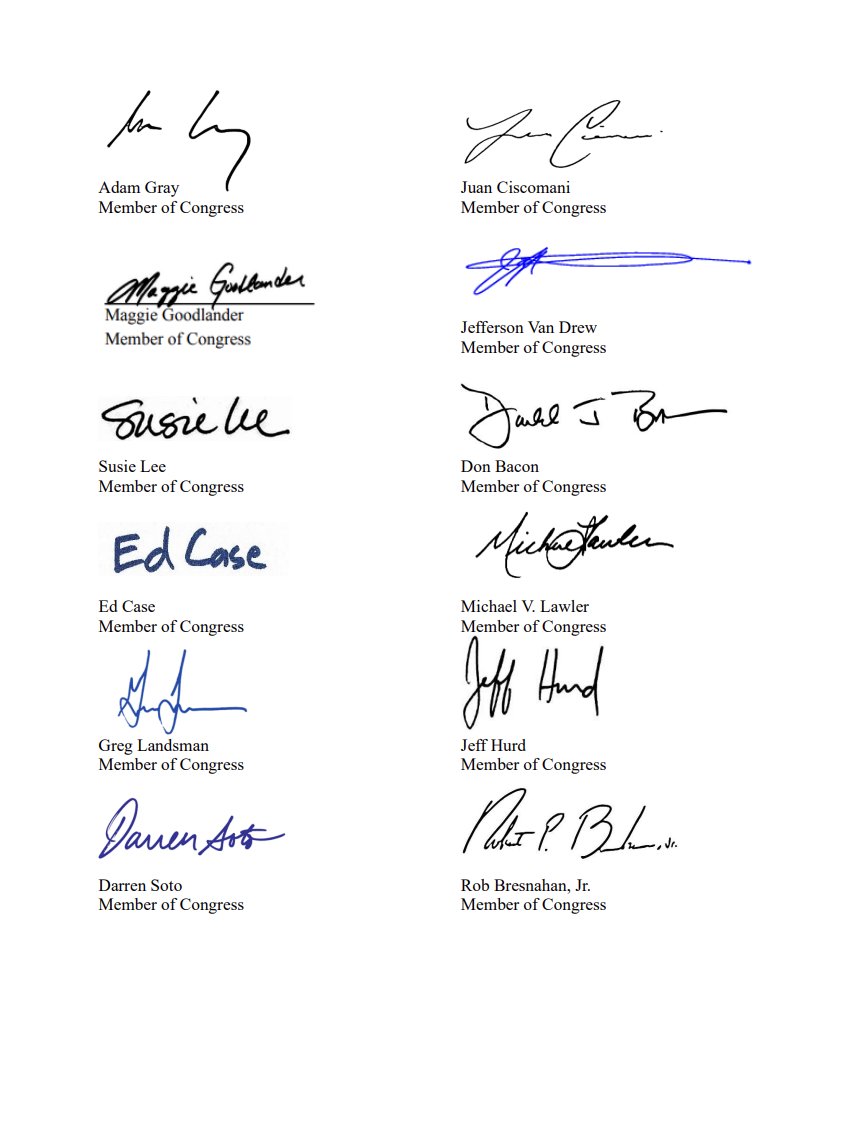 Adam Gray
Member of Congress
Juan Ciscomani
Member of Congress
Maggie Goodlander
Maggie Goodlander
Member of Congress
Jefferson Van Drew
Member of Congress
Susie Lee
Susie Lee
Member of Congress
Don Bacon
Member of Congress
Ed Case
Ed Case
Member of Congress
Michael Lawler
Michael V. Lawler
Member of Congress
Greg Landsman
Member of Congress
Jeff Hurd
Jeff Hurd
Member of Congress
Darren Soto
Darren Soto
Member of Congress
P. , Jr.
Rob Bresnahan, Jr.
Member of Congress